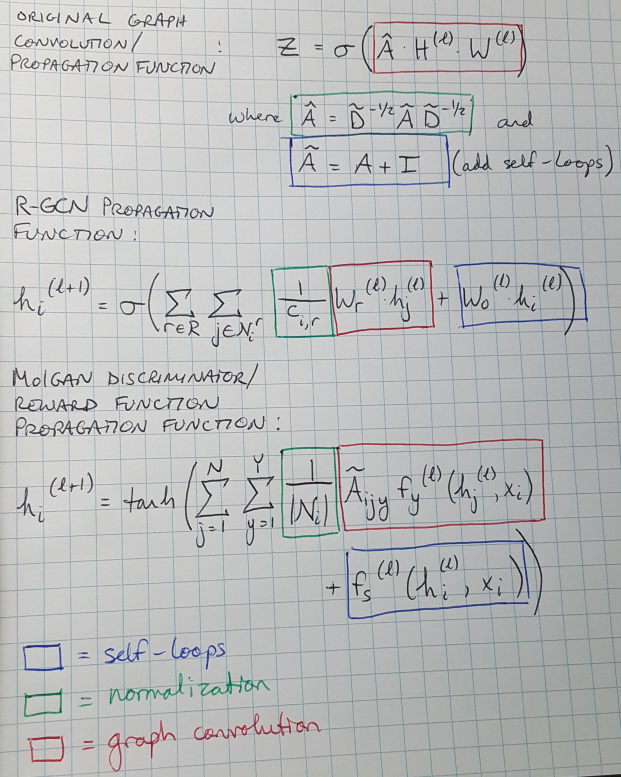 ORIGINAL GRAPH
CONVOLUTION/ : Z = σ(Â · H^(ℓ) · W^(ℓ))
PROPAGATION FUNCTION
where Â = D̃^-1/2 Ã D̃^-1/2 and
Ã = A + I (add self-loops)
R-GCN PROPAGATION
FUNCTION :
h_i^(ℓ+1) = σ(∑_{r∈R} ∑_{j∈N_i^r} 1/c_{i,r} W_r^(ℓ) · h_j^(ℓ) + W_0^(ℓ) · h_i^(ℓ))
MolGAN DISCRIMINATOR/
REWARD FUNCTION
PROPAGATION FUNCTION :
h_i^(ℓ+1) = tanh(∑_{j=1}^N ∑_{y=1}^Y 1/|N_i| Ã_{ijy} f_y^(ℓ)(h_j^(ℓ), x_i)
+ f_s^(ℓ)(h_i^(ℓ), x_i))
= self-loops
= normalization
= graph convolution